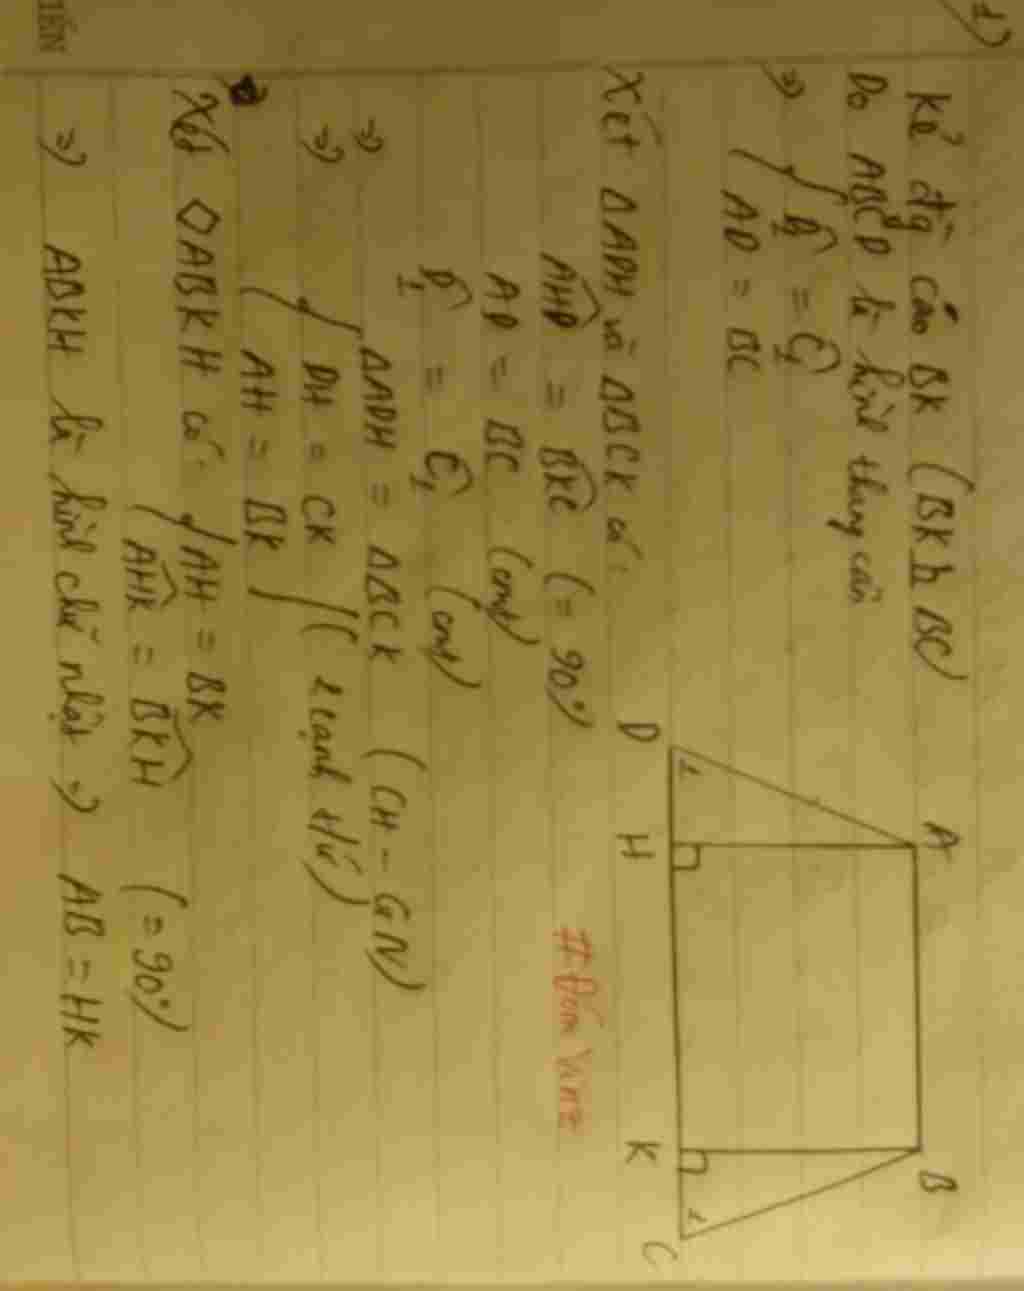 1)
Kẻ đg cao BK (BK h BC)
Do ABCD là hình thang cân
=> { D̂1 = Ĉ1
AD = BC
Xét ΔADH và ΔBCK có:
AHD = BKC (= 90°)
AD = BC (cmt)
D̂1 = Ĉ1 (cmt)
=> ΔADH = ΔBCK (CH - GN)
=> { DH = CK
AH = BK } (2 cạnh t/ứ)
Xét ◇ABKH có: { AH = BK
AHK = BKH (= 90°)
=> ABKH là hình chữ nhật => AB = HK
A
B
D
1
H
K
1
C
#Đóm Vinz
TIẾN